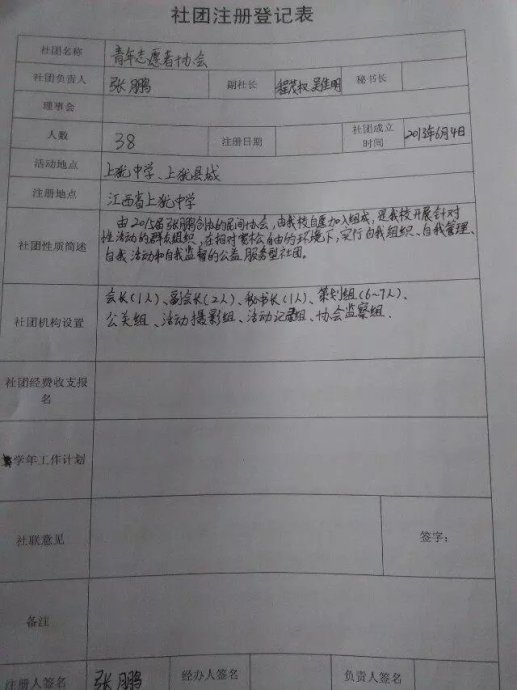 社团注册登记表
社团名称 青年志愿者协会
社团负责人 张鹏 副社长 程茂权 吴佳明 秘书长
理事会
人数 38 注册日期 社团成立时间 2013年6月4日
活动地点 上犹中学、上犹县城
注册地点 江西省上犹中学
社团性质简述 由2015届张鹏创办的民间协会,由我校自愿加入组成,是我校开展针对
性活动的群众组织,在相对宽松自由的环境下,实行自我组织、自我管理、
自我活动和自我监督的公益服务型社团。
社团机构设置 会长(1人)、副会长(2人)、秘书长(1人)、策划组(6~7人)、
公关组、活动摄影组、活动记录组、协会监察组、
社团经费收支报名
学年工作计划
社联意见 签字:
备注
注册人签名 张鹏 经办人签名 负责人签名